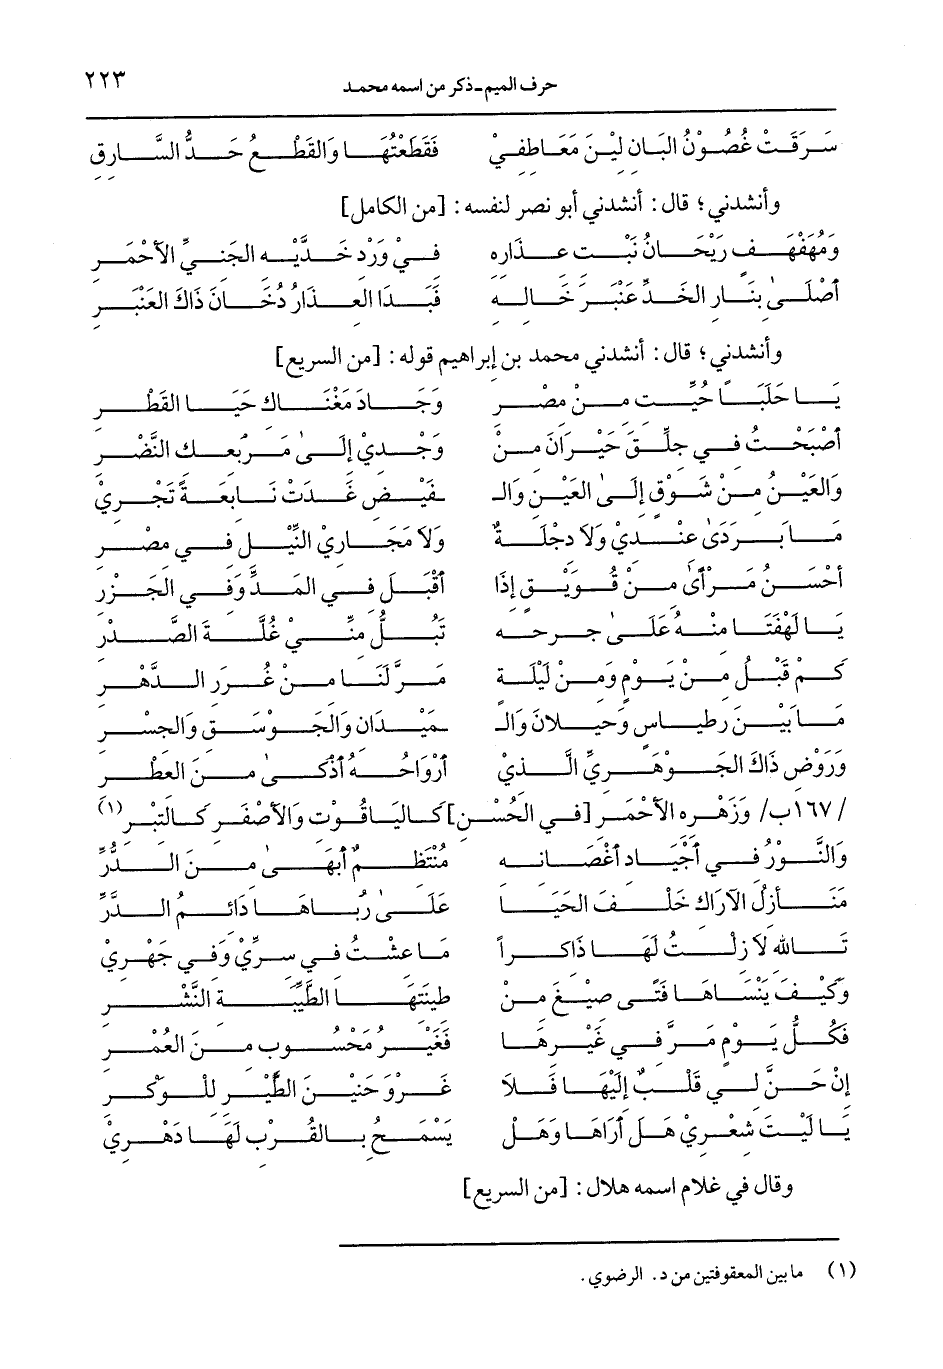 حرف الميم - ذكر من اسمه محمد ٢٢٣
سَرَقَتْ غُصُوْنُ البَانِ لِيْنَ مَعَاطِفِيْ فَقَطَعْتُهَا وَالقَطْعُ حَدُّ السَّارِقِ
وأنشدني؛ قال: أنشدني أبو نصر لنفسه: [من الكامل]
وَمُهَفْهَفٍ رَيْحَانُ نَبْتِ عِذَارِهِ فِيْ وَرْدِ خَدَّيْهِ الجَنِيِّ الأَحْمَرِ
أَصْلَىٰ بِنَارِ الخَدِّ عَنْبَرَ خَالِهِ فَبَدَا العِذَارُ دُخَانَ ذَاكَ العَنْبَرِ
وأنشدني؛ قال: أنشدني محمد بن إبراهيم قوله: [من السريع]
يَا حَلَبَاً حُيِّيتِ مِنْ مِصْرِ وَجَادَ مَغْنَاكِ حَيَا القَطْرِ
أَصْبَحْتُ فِي جِلِّقَ حَيْرَانَ مِنْ وَجْدِيْ إِلَىٰ مَرْبَعِكِ النَّضْرِ
وَالعَيْنُ مِنْ شَوْقٍ إِلَىٰ العَيْنِ وَالـ ـفَيْضِ غَدَتْ نَابِعَةً تَجْرِيْ
مَا بَرَدَىٰ عِنْدِيْ وَلاَ دِجْلَةٌ وَلاَ مَجَارِيْ النِّيْلِ فِي مِصْرِ
أَحْسَنُ مَرْأَىً مِنْ قُوَيْقٍ إِذَا أَقْبَلَ فِي المَدِّ وَفِي الجَزْرِ
يَا لَهْفَتَا مِنْهُ عَلَىٰ جرحِهِ تَبُلُّ مِنِّيْ غُلَّةَ الصَّدْرِ
كَمْ قَبْلُ مِنْ يَوْمٍ وَمِنْ لَيْلَةٍ مَرَّ لَنَا مِنْ غُرَرِ الدَّهْرِ
مَا بَيْنَ رطياسٍ وَحيلانَ وَالـ ـمَيْدَانِ وَالجَوْسَقِ وَالجِسْرِ
وَرَوْضِ ذَاكَ الجَوْهَرِيِّ الَّذِيْ أَرْوَاحُهُ أَذْكَىٰ مِنَ العِطْرِ
/١٦٧ب/ وَزَهْرِهِ الأَحْمَرِ [فِي الحُسْنِ] كَاليَاقُوْتِ وَالأَصْفَرِ كَالتِّبْرِ(١)
وَالنَّوْرُ فِي أَجْيَادِ أَغْصَانِهِ مُنْتَظِمٌ أَبْهَىٰ مِنَ الدُّرِّ
مَنَازِلُ الآرَاكِ خِلْفَ الحَيَا عَلَىٰ رُبَاهَا دَائِمُ الدَّرِّ
تَاللهِ لاَ زِلْتُ لَهَا ذَاكِرَاً مَا عِشْتُ فِي سِرِّيْ وَفِي جَهْرِيْ
وَكَيْفَ يَنْسَاهَا فَتَىً صِيْغَ مِنْ طِيْنَتِهَا الطَّيِّبَةِ النَّشْرِ
فَكُلُّ يَوْمٍ مَرَّ فِي غَيْرِهَا فَغَيْرُ مَحْسُوبٍ مِنَ العُمْرِ
إِنْ حَنَّ لِي قَلْبٌ إِلَيْهَا فَلاَ غَرْوَ حَنِيْنَ الطَّيْرِ لِلْوَكْرِ
يَا لَيْتَ شِعْرِيْ هَلْ أَرَاهَا وَهَلْ يَسْمَحُ بِالقُرْبِ لَهَا دَهْرِيْ
وقال في غلام اسمه هلال: [من السريع]
(١) ما بين المعقوفتين من د. الرضوي.